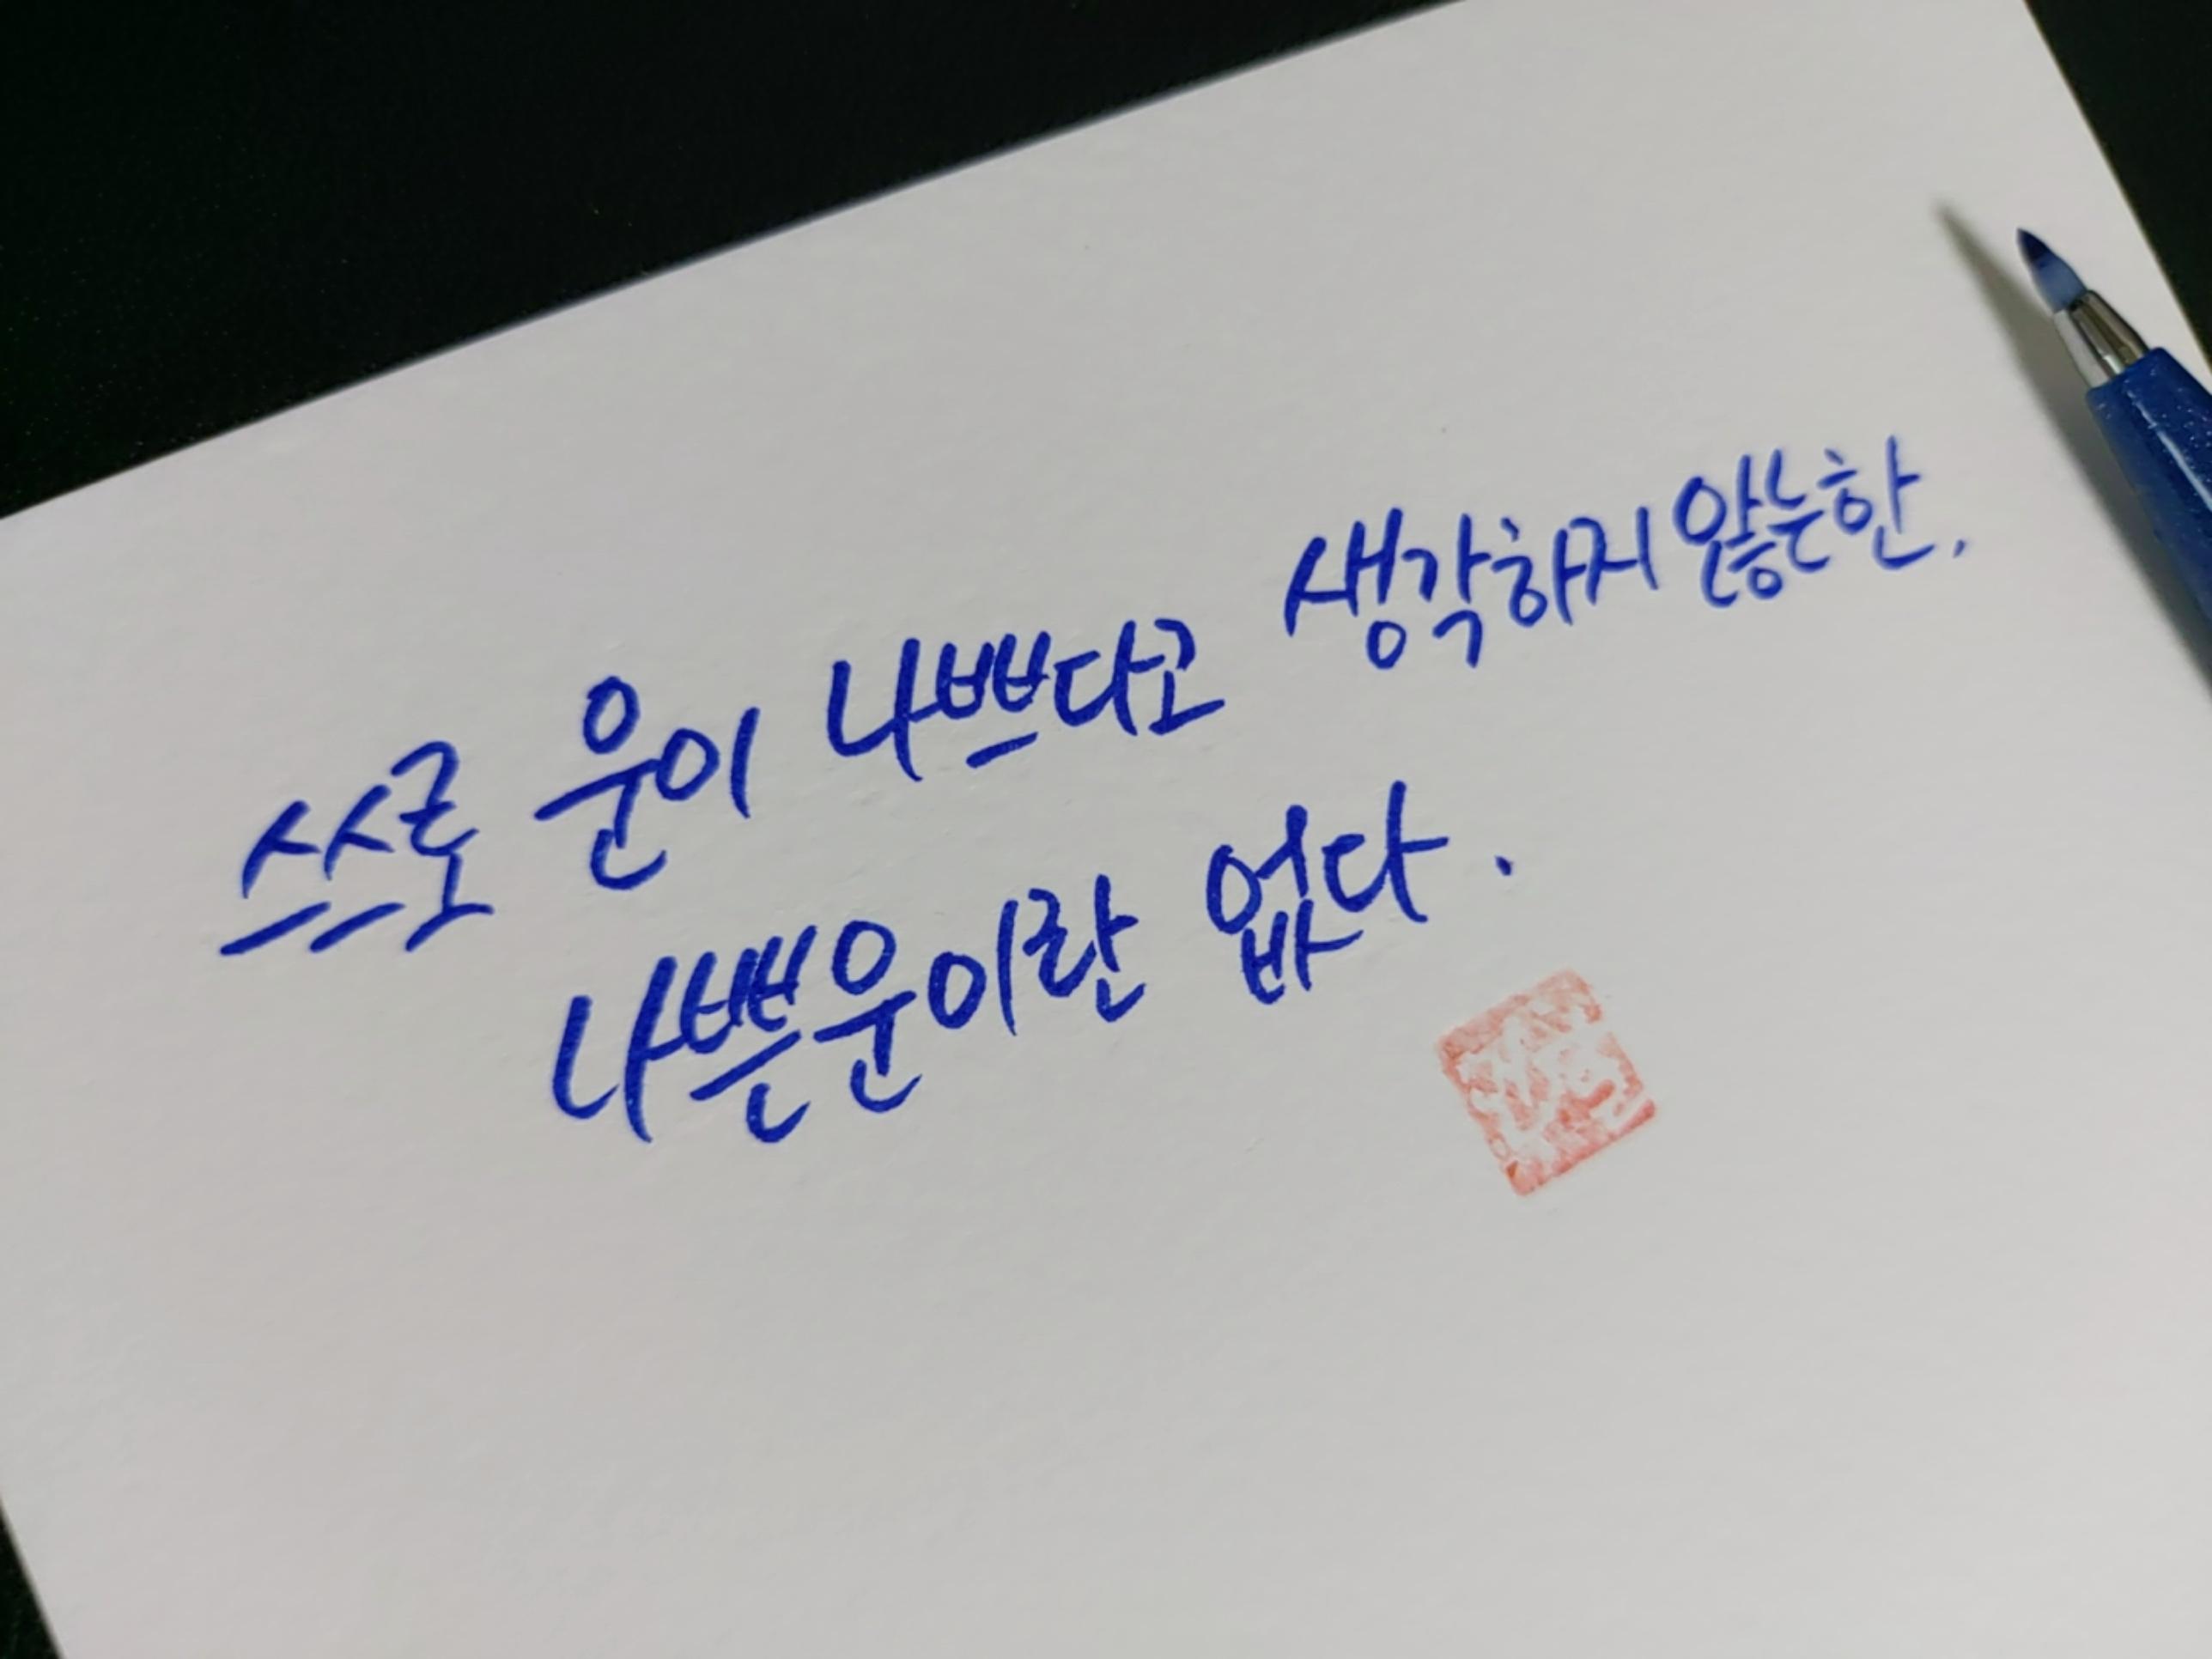 스스로 운이 나쁘다고 생각하지 않는한,
나쁜운이란 없다.